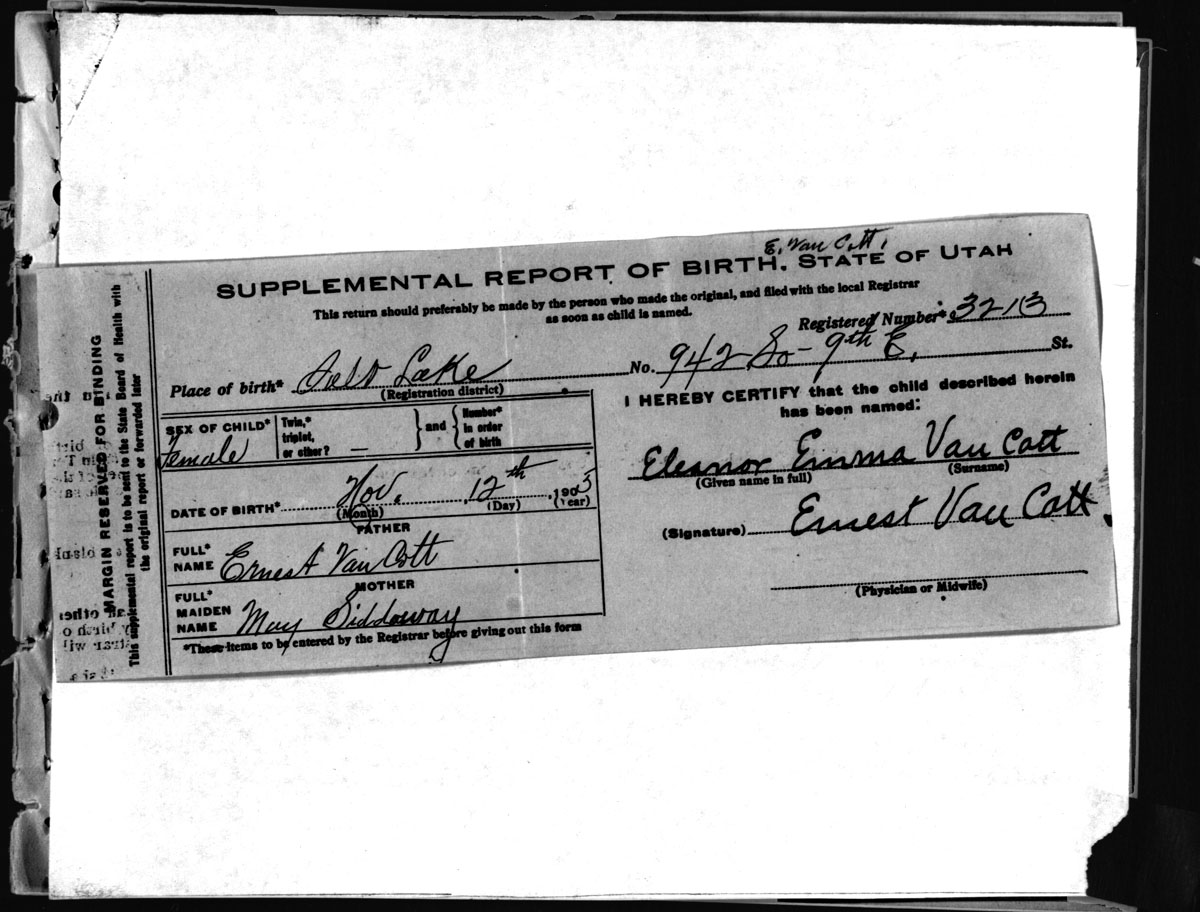 E. Van Cott,
SUPPLEMENTAL REPORT OF BIRTH. STATE OF UTAH
This return should preferably be made by the person who made the original, and filed with the local Registrar
as soon as child is named.
Registered Number* 3213
Place of birth* Salt Lake No. 942 So - 9th E, St.
(Registration district)
SEX OF CHILD* Female
Twin,* triplet, or other? — } and { Number* in order of birth
DATE OF BIRTH* Nov. 12th 1903
(Month) (Day) (Year)
FATHER
FULL* NAME Ernest Van Cott
MOTHER
FULL* MAIDEN NAME May Siddoway
*These items to be entered by the Registrar before giving out this form
I HEREBY CERTIFY that the child described herein
has been named:
Eleanor Emma Van Cott
(Given name in full) (Surname)
(Signature) Ernest Van Cott.
(Physician or Midwife)
MARGIN RESERVED FOR BINDING
This supplemental report is to be sent to the State Board of Health with
the original report or forwarded later